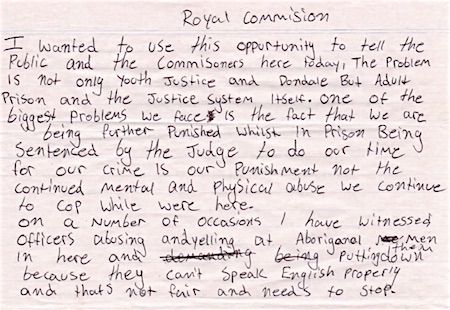 Royal Commision
I wanted to use this opportunity to tell the
Public and the Commisoners here today, The Problem
Is not only Youth Justice and Dondale But Adult
Prison and the Justice System Itself. One of the
biggest Problems we face is the fact that we are
being further Punished Whilst In Prison Being
Sentenced by the Judge to do our time
for our crime Is our Punishment not the
continued Mental and Physical abuse we continue
to Cop while were here.
on a Number of occasions I have witnessed
Officers abusing and yelling at Aboriganal Men
In here and being Putting them down
because they can't Speak English Properly
and thats not fair and needs to Stop.